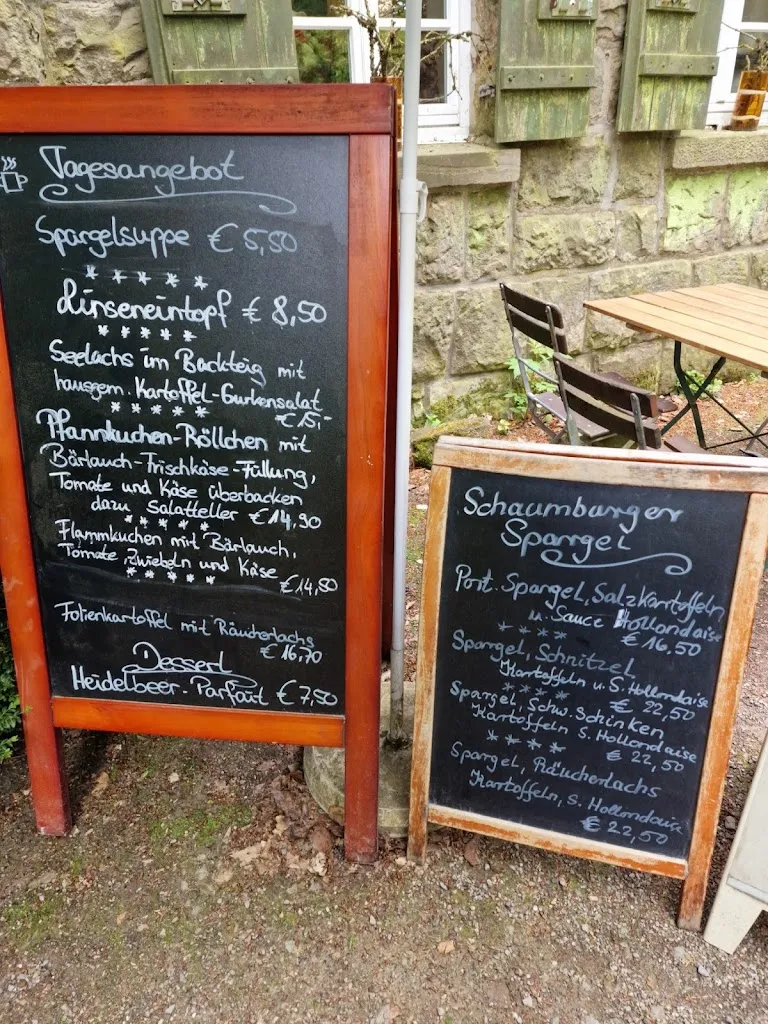 Tagesangebot
Spargelsuppe € 5,50
* * * * *
Linseneintopf € 8,50
* * * * *
Seelachs im Backteig mit
hausgem. Kartoffel-Gurkensalat
* * * * * € 15,-
Pfannkuchen-Röllchen mit
Bärlauch-Frischkäse-Füllung,
Tomate und Käse überbacken
dazu Salatteller € 14,90
* * * * *
Flammkuchen mit Bärlauch,
Tomate, Zwiebeln und Käse
* * * * * € 14,50
Folienkartoffel mit Räucherlachs
€ 16,70
Dessert
Heidelbeer-Parfait € 7,50
Schaumburger
Spargel
Port. Spargel, Salzkartoffeln
u. Sauce Hollondaise
* * * * € 16,50
Spargel, Schnitzel
Kartoffeln u. S. Hollondaise
* * * * € 22,50
Spargel, Schw. Schinken
Kartoffeln S. Hollondaise
* * * * € 22,50
Spargel, Räucherlachs
Kartoffeln, S. Hollondaise
€ 22,50